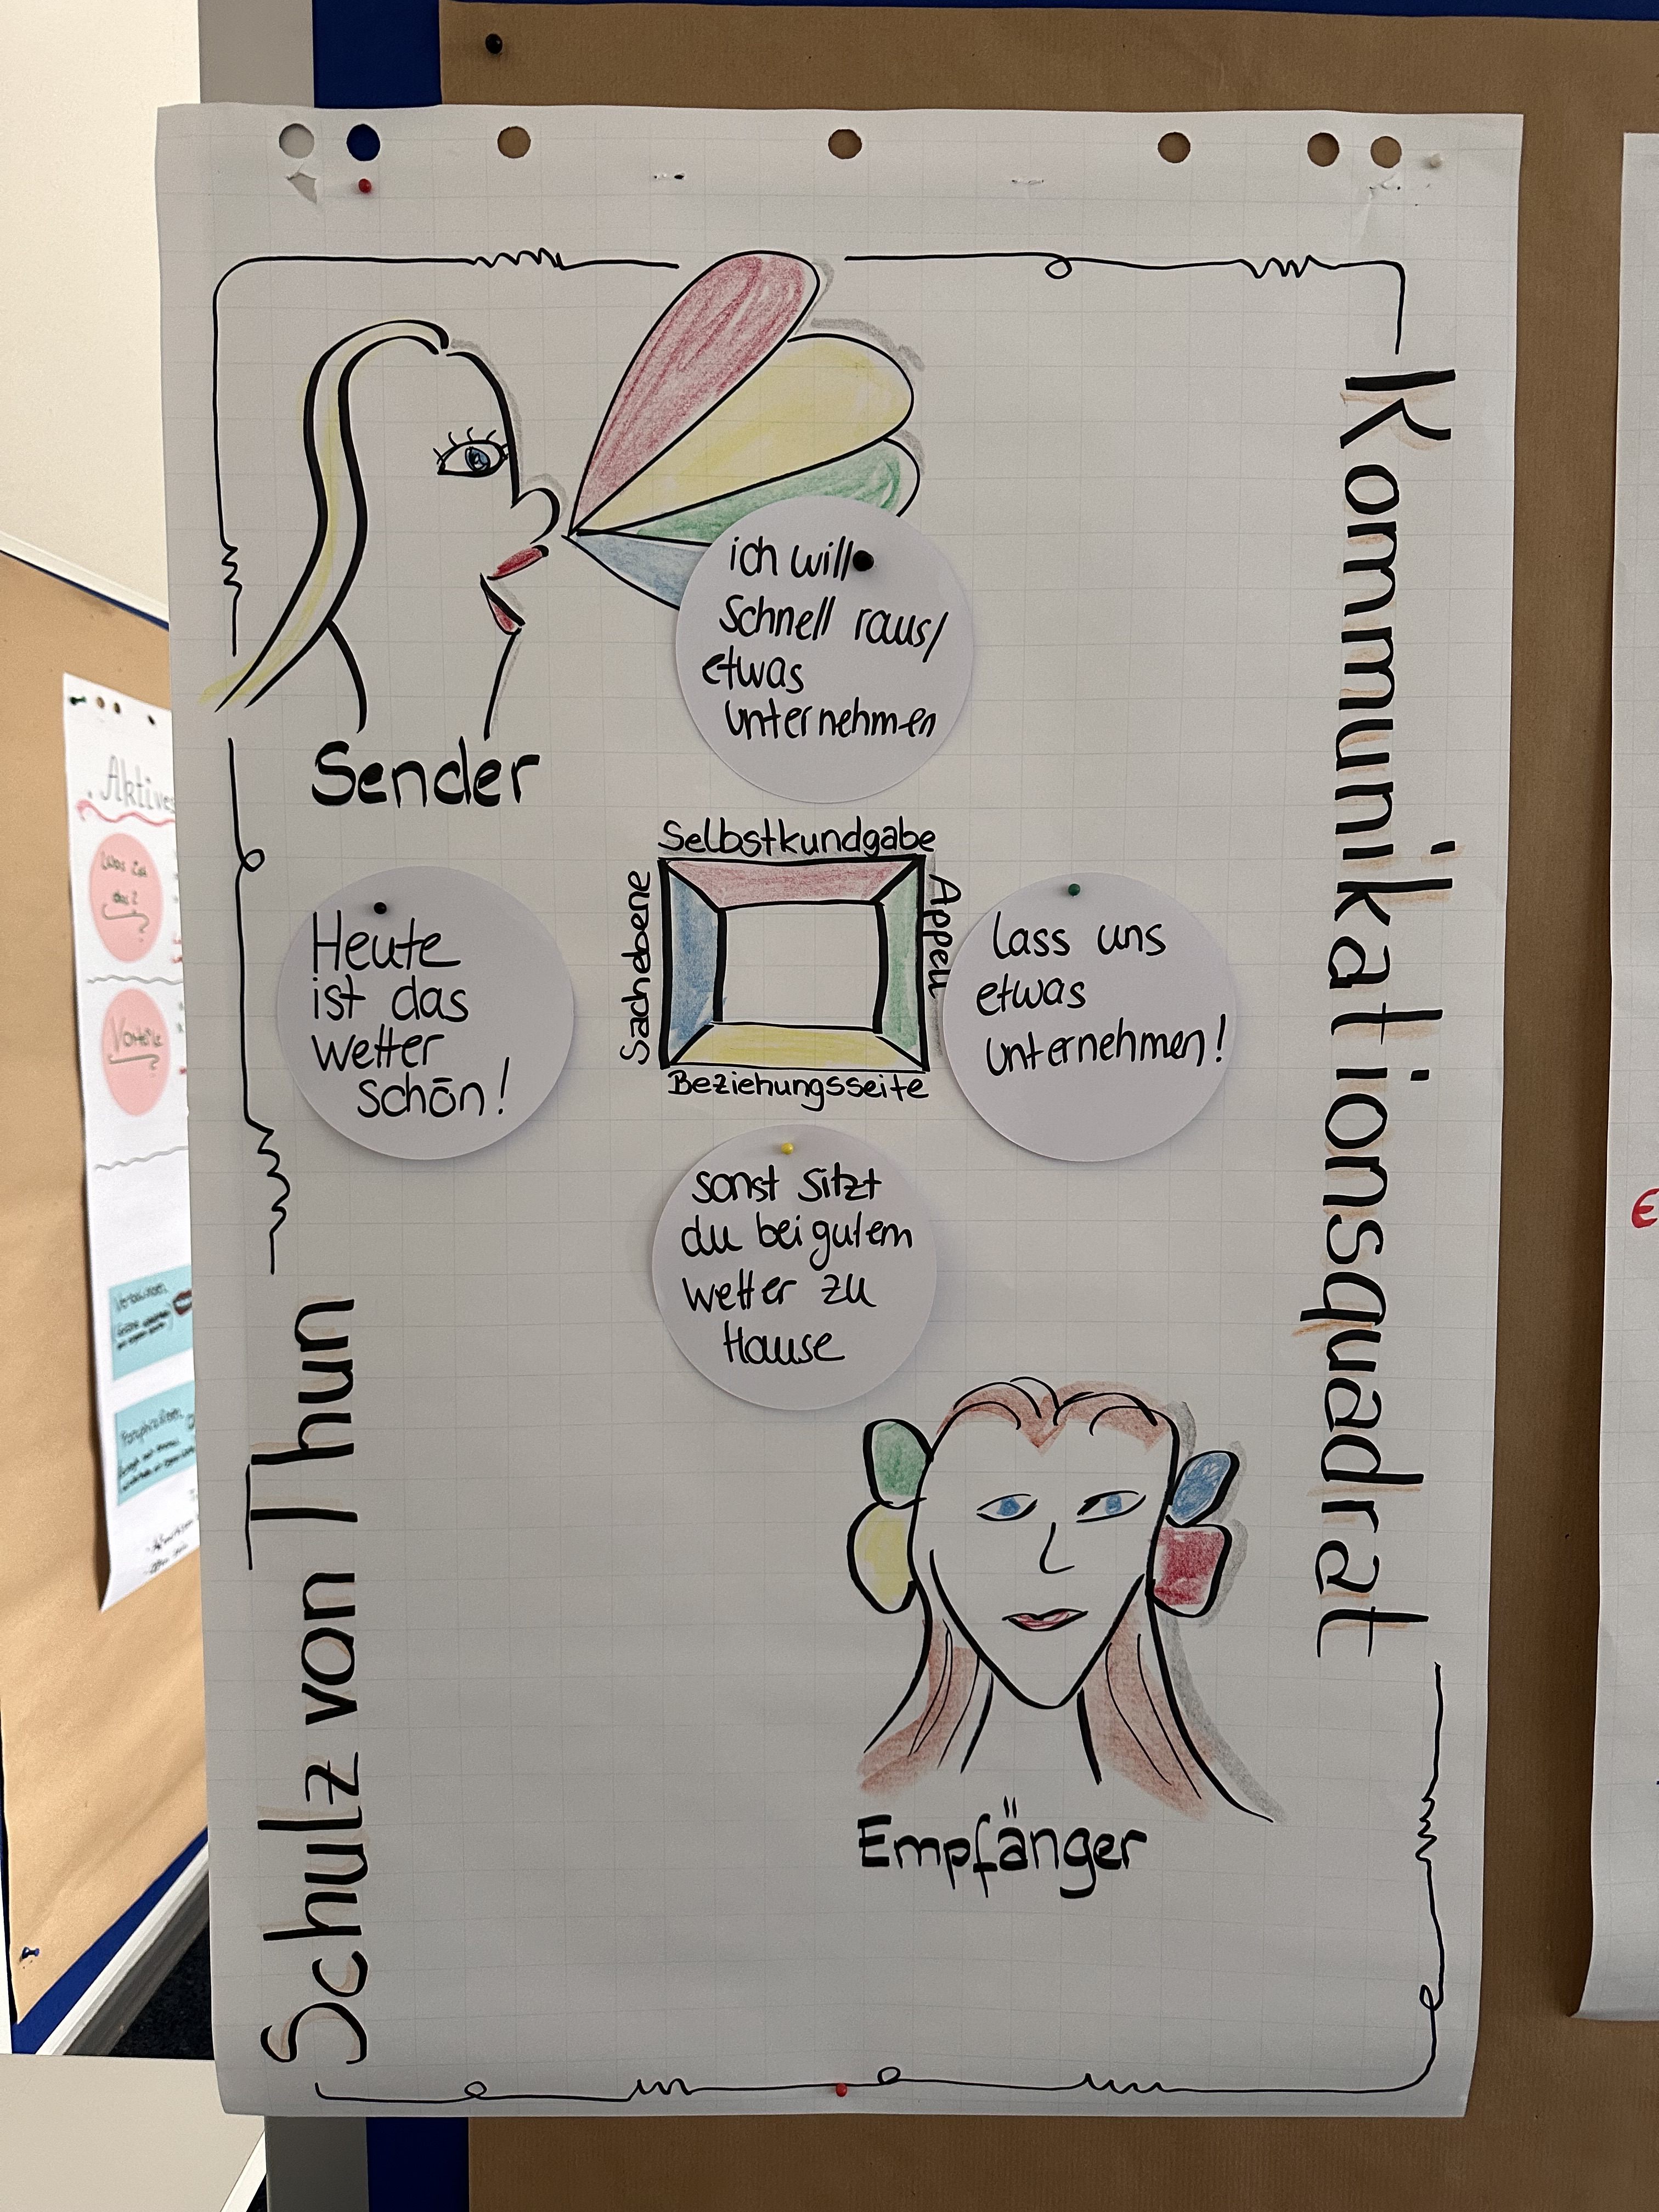 Kommunikationsquadrat
Schulz von Thun
Sender
ich will
schnell raus/
etwas
unternehmen
Selbstkundgabe
Sachebene
Appell
Beziehungsseite
Heute
ist das
wetter
schön!
lass uns
etwas
unternehmen!
sonst sitzt
du bei gutem
wetter zu
Hause
Empfänger
Aktives
Was ist
das?
Vorteile
?
E